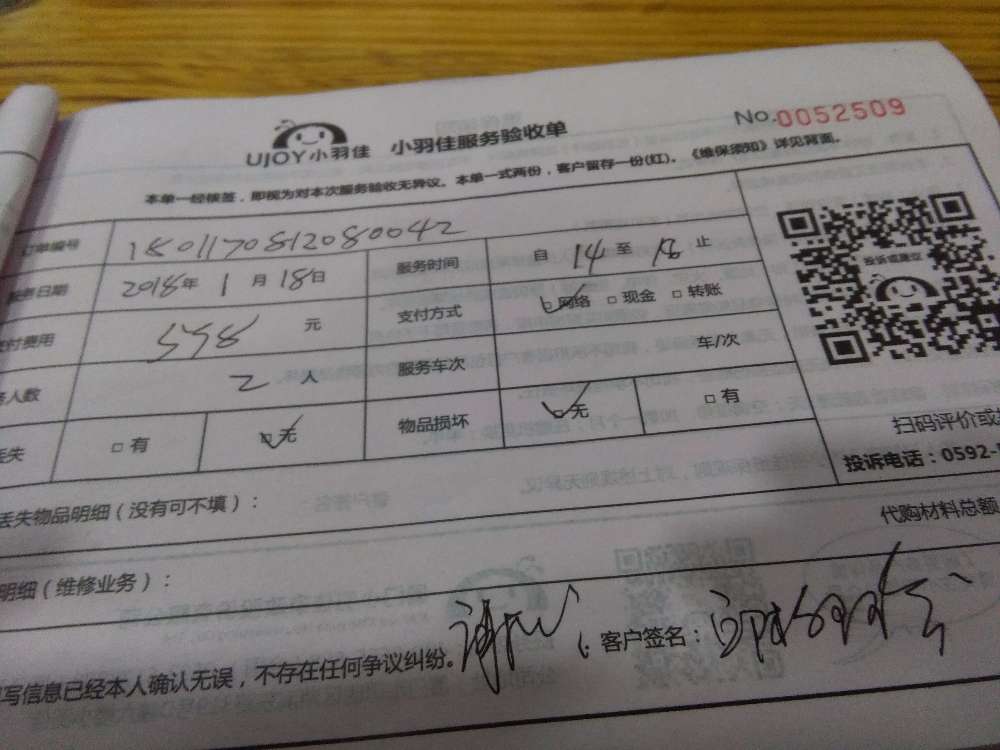 No.0052509
UJOY小羽佳 小羽佳服务验收单
本单一经核签，即视为对本次服务验收无异议。本单一式两份，客户留存一份(红)。《维保须知》详见背面。
订单编号 1801170812080042 服务时间 自 14 至 18 止
服务日期 2018年 1月 18日 支付方式 网络 现金 转账
付费用 598 元 服务车次 车/次
人数 2 人
丢失 有 无 物品损坏 无 有
投诉或建议
扫码评价或
投诉电话：0592-
丢失物品明细（没有可不填）：
代购材料总额
明细（维修业务）：
写信息已经本人确认无误，不存在任何争议纠纷。 客户签名：